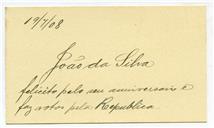 19/7/08
João da Silva
felicita pelo seu anniversario e
faz votos pela Republica